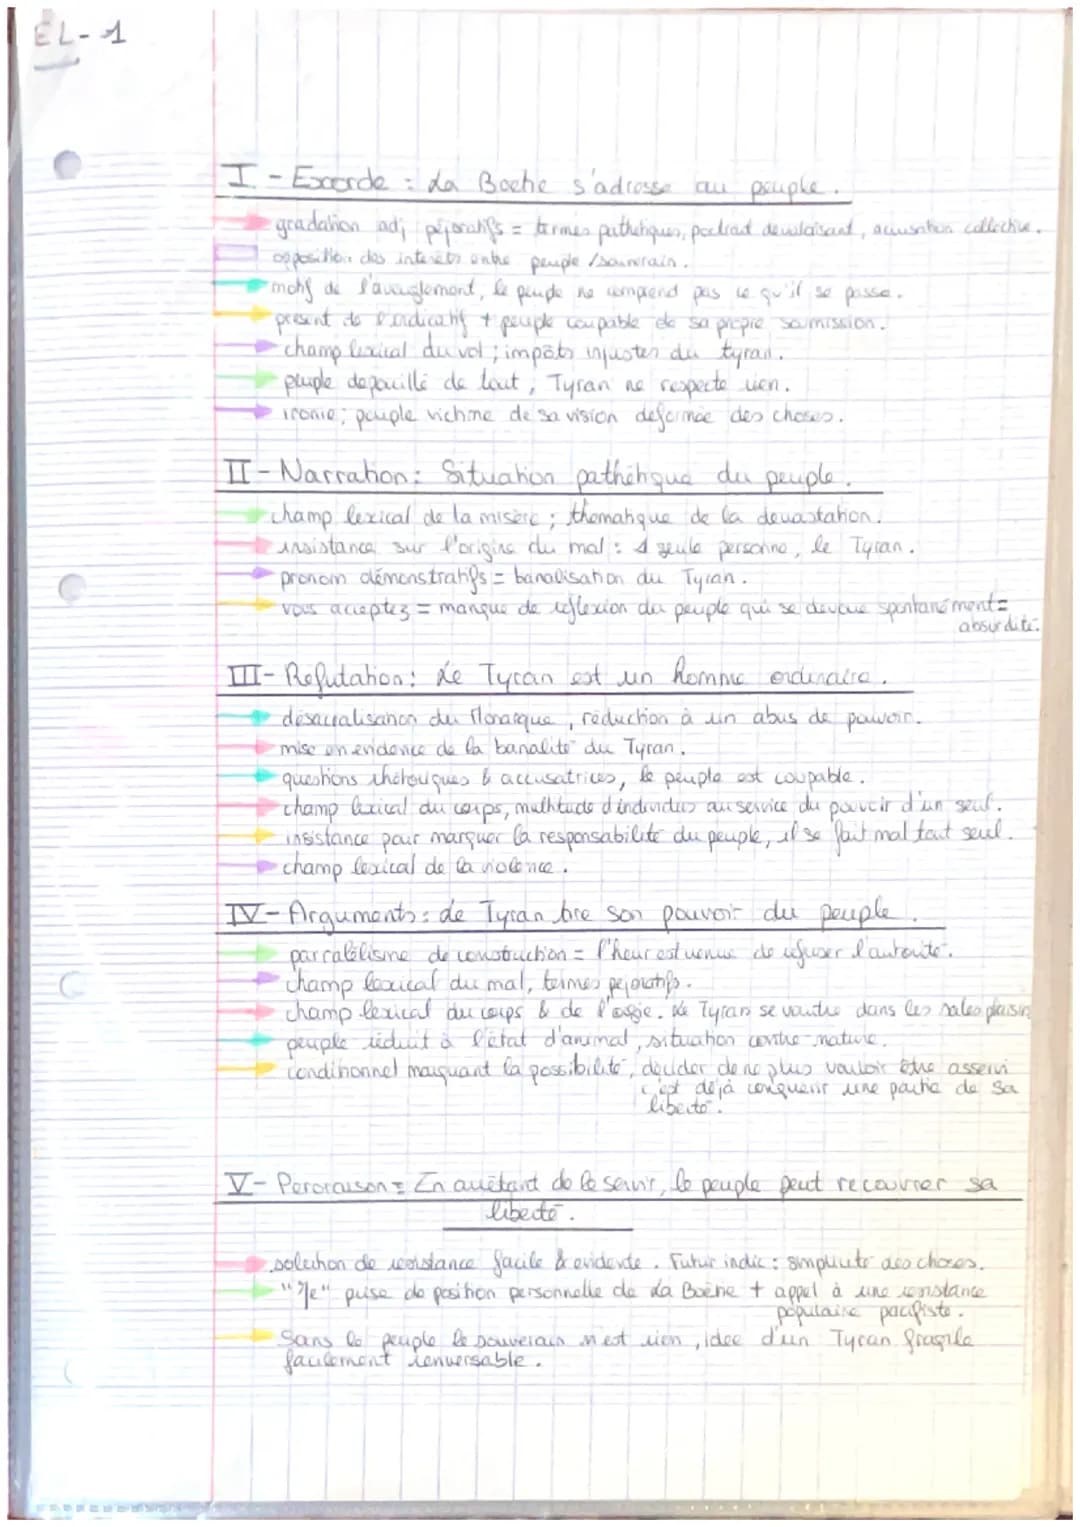 EL-1
I - Exorde : La Boetie s'adresse au peuple.
gradation adj péjoratifs = termes pathétiques, portrait dévalorisant, accusation collective.
opposition des interets entre peuple / souverain.
motif de l'aveuglement, le peuple ne comprend pas ce qu'il se passe.
présent de l'indicatif + peuple coupable de sa propre soumission.
champ lexical du vol ; impôts injustes du tyran.
peuple depouillé de tout, Tyran ne respecte rien.
ironie ; peuple victime de sa vision deformée des choses.
II - Narration : Situation pathétique du peuple.
champ lexical de la misère ; thematique de la devastation.
insistance sur l'origine du mal : 1 seule personne, le Tyran.
pronom démonstratifs = banalisation du Tyran.
vous acceptez = manque de reflexion du peuple qui se devoue spontanément =
absurdité.
III - Refutation : Le Tyran est un homme ordinaire.
désacralisation du Monarque, réduction à un abus de pouvoir.
mise en evidence de la banalité du Tyran.
questions rhétoriques & accusatrices, le peuple est coupable.
champ lexical du corps, multitude d'individus au service du pouvoir d'un seul.
insistance pour marquer la responsabilité du peuple, il se fait mal tout seul.
champ lexical de la violence.
IV - Arguments : Le Tyran tire son pouvoir du peuple.
parralélisme de construction = l'heur est venue de refuser l'autorité.
champ lexical du mal, termes pejoratifs.
champ lexical du corps & de l'orgie. Le Tyran se vautre dans les sales plaisirs
peuple réduit à l'état d'animal, situation contre-nature.
conditionnel marquant la possibilité, decider de ne plus vouloir être asservi
c'est déjà conquerir une partie de sa
liberté.
V - Peroraison = En arrêtant de le servir, le peuple peut recouvrer sa
liberté.
solution de resistance facile & evidente. Futur indic : simplicité des choses.
"Je" prise de position personnelle de La Boétie + appel à une resistance
populaire pacifiste.
Sans le peuple le souverain n'est rien, idee d'un Tyran fragile
facilement renversable.